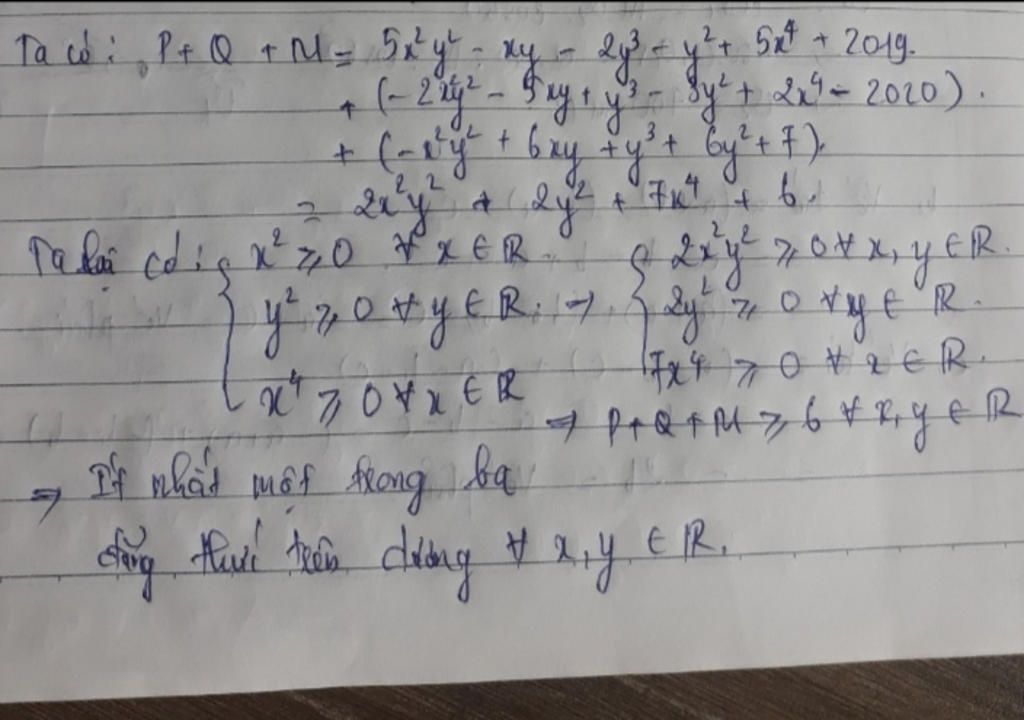 Ta có: P+Q+M = 5x²y² - xy - 2y³ - y² + 5x⁴ + 2019.
+ (-2x²y² - 5xy + y³ - 3y² + 2x⁴ - 2020).
+ (-x²y² + 6xy + y³ + 6y² + 7).
= 2x²y² + 2y² + 7x⁴ + 6.
Ta lại có: { x² ≥ 0 ∀ x ∈ ℝ. { 2x²y² ≥ 0 ∀ x, y ∈ ℝ.
y² ≥ 0 ∀ y ∈ ℝ. → 2y² ≥ 0 ∀ y ∈ ℝ.
x⁴ ≥ 0 ∀ x ∈ ℝ 7x⁴ ≥ 0 ∀ x ∈ ℝ.
⇒ P+Q+M ≥ 6 ∀ x, y ∈ ℝ
⇒ Ít nhất một trong ba
đẳng thức trên dương ∀ x, y ∈ ℝ.